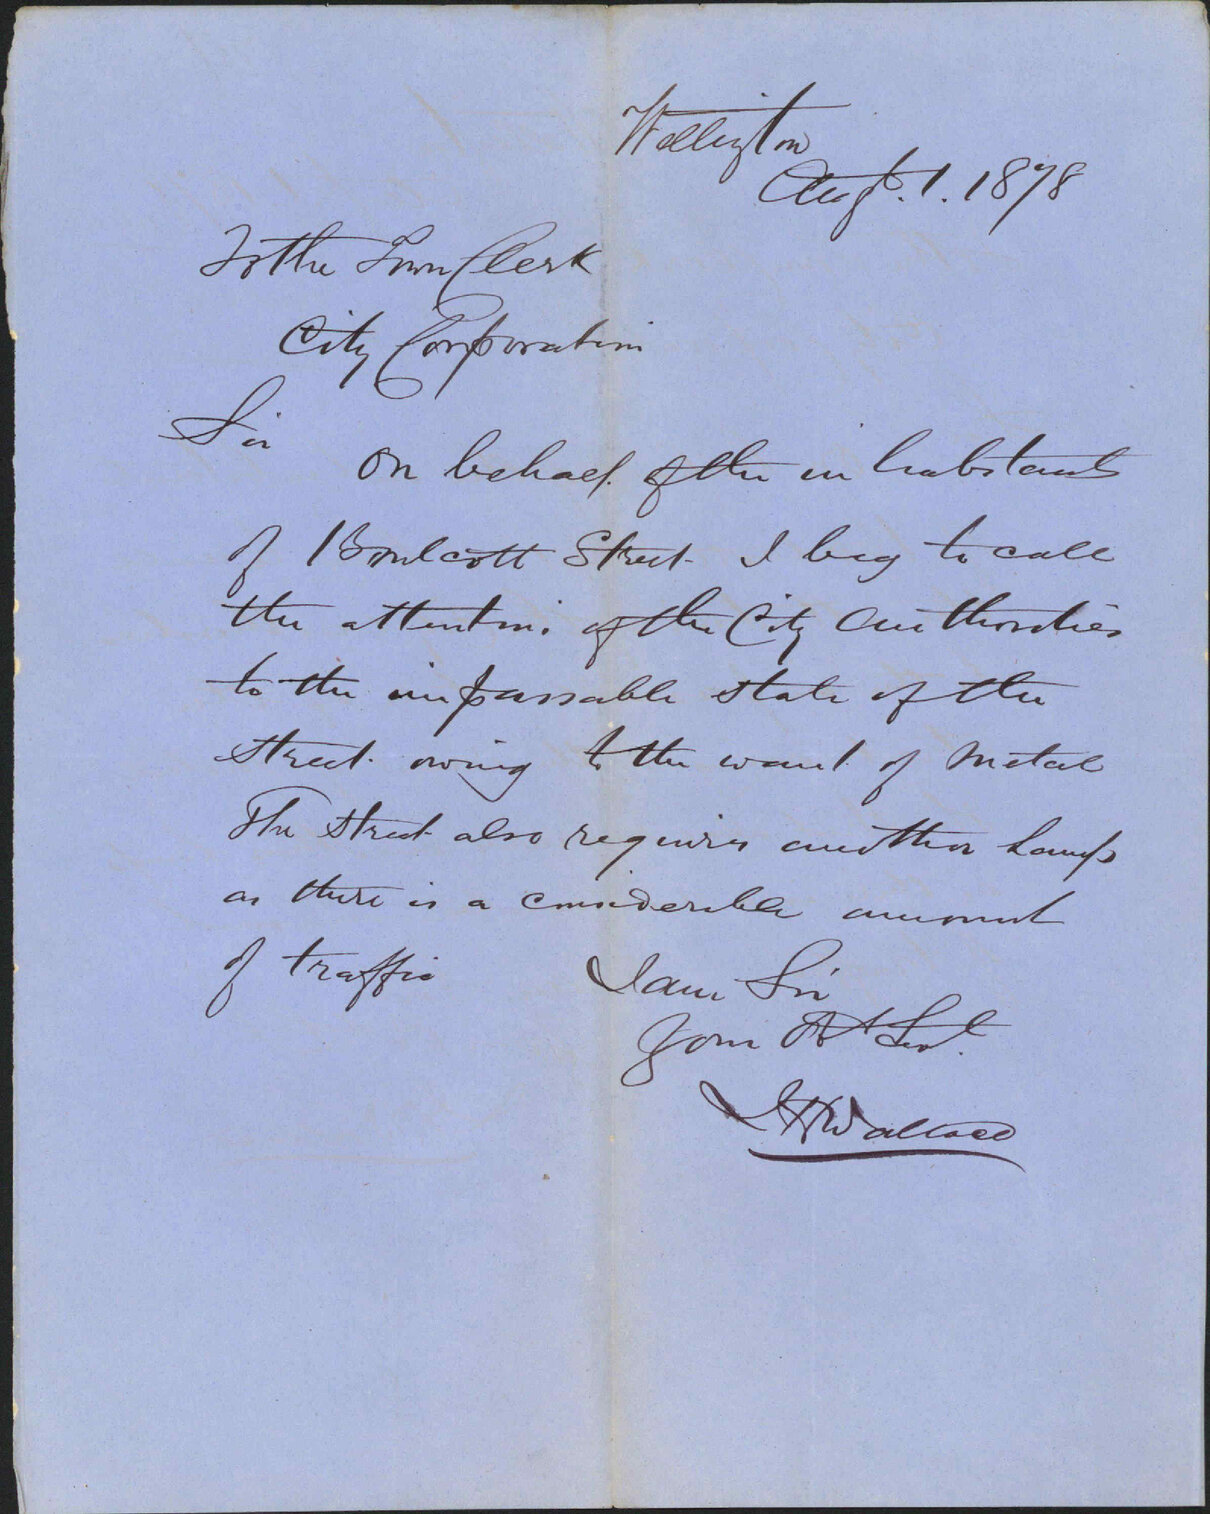 Wellington
Augt. 1. 1878
To the Town Clerk
City Corporation
Sir
On behalf of the inhabitants
of Boulcott Street I beg to call
the attention of the City Authorities
to the impassable state of the
street owing to the want of metal
The street also requires another Lamp
as there is a considerable amount
of traffic
I am Sir
Your Obt Sevt.
Wallace